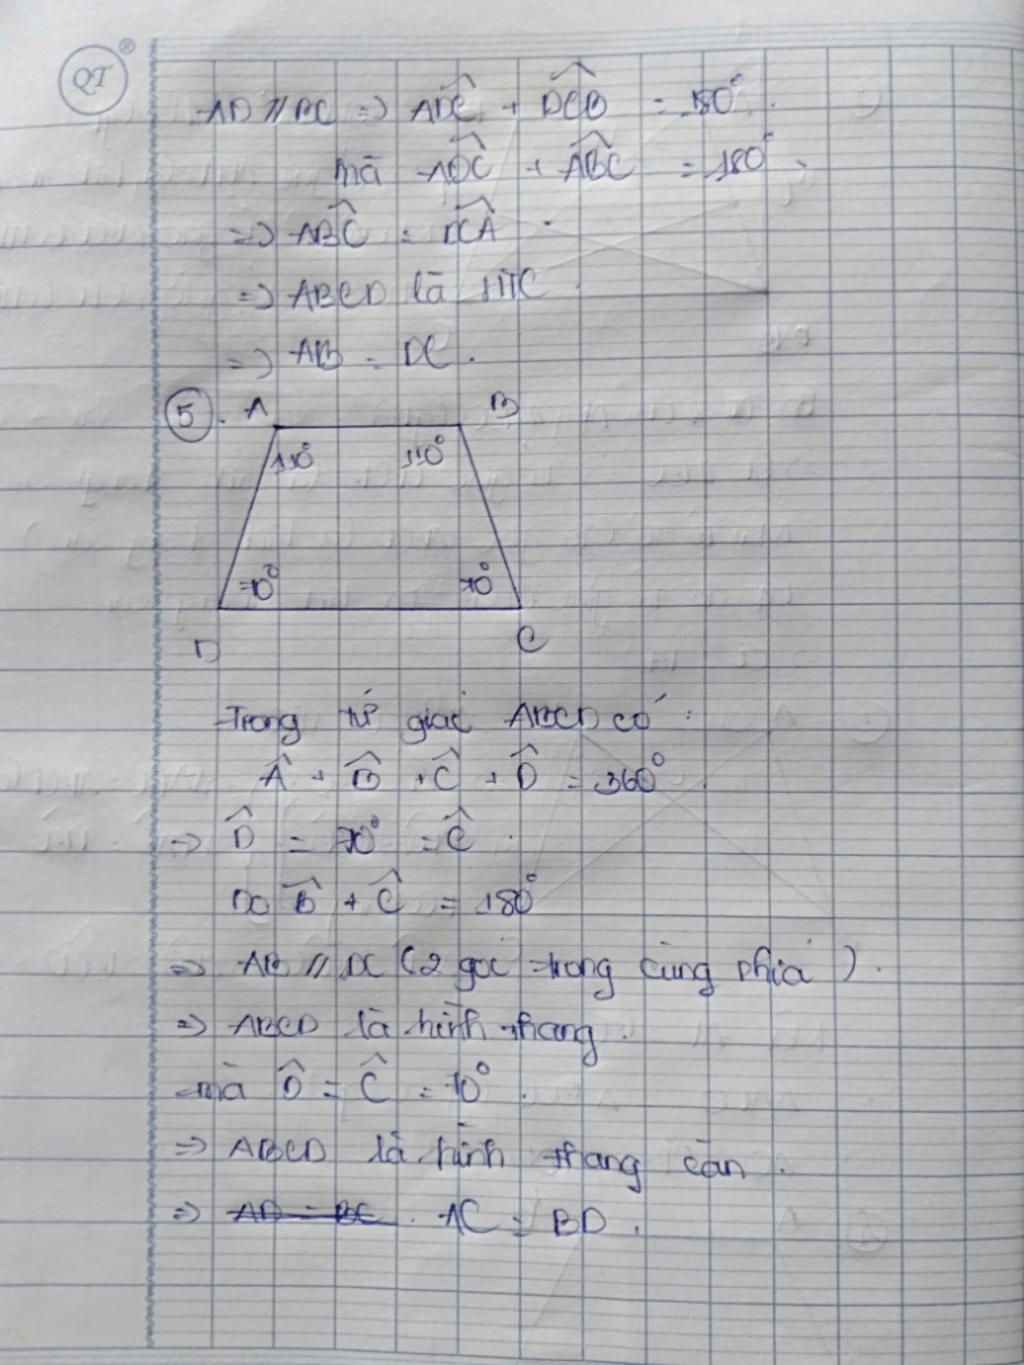 QT ®
AD // BC => ADC + DCB = 180°.
mà ADC + ABC = 180°.
=> ABC = DCA.
=> ABCD là HTC.
=> AB = DC.
5. A B
110° 110°
70° 70°
D C
Trong tứ giác ABCD có:
Â + B̂ + Ĉ + D̂ = 360°.
=> D̂ = 70° = Ĉ.
Do B̂ + Ĉ = 180°
=> AB // DC (2 góc trong cùng phía).
=> ABCD là hình thang.
mà D̂ = Ĉ = 70°.
=> ABCD là hình thang cân.
=> AD = BC. AC = BD.